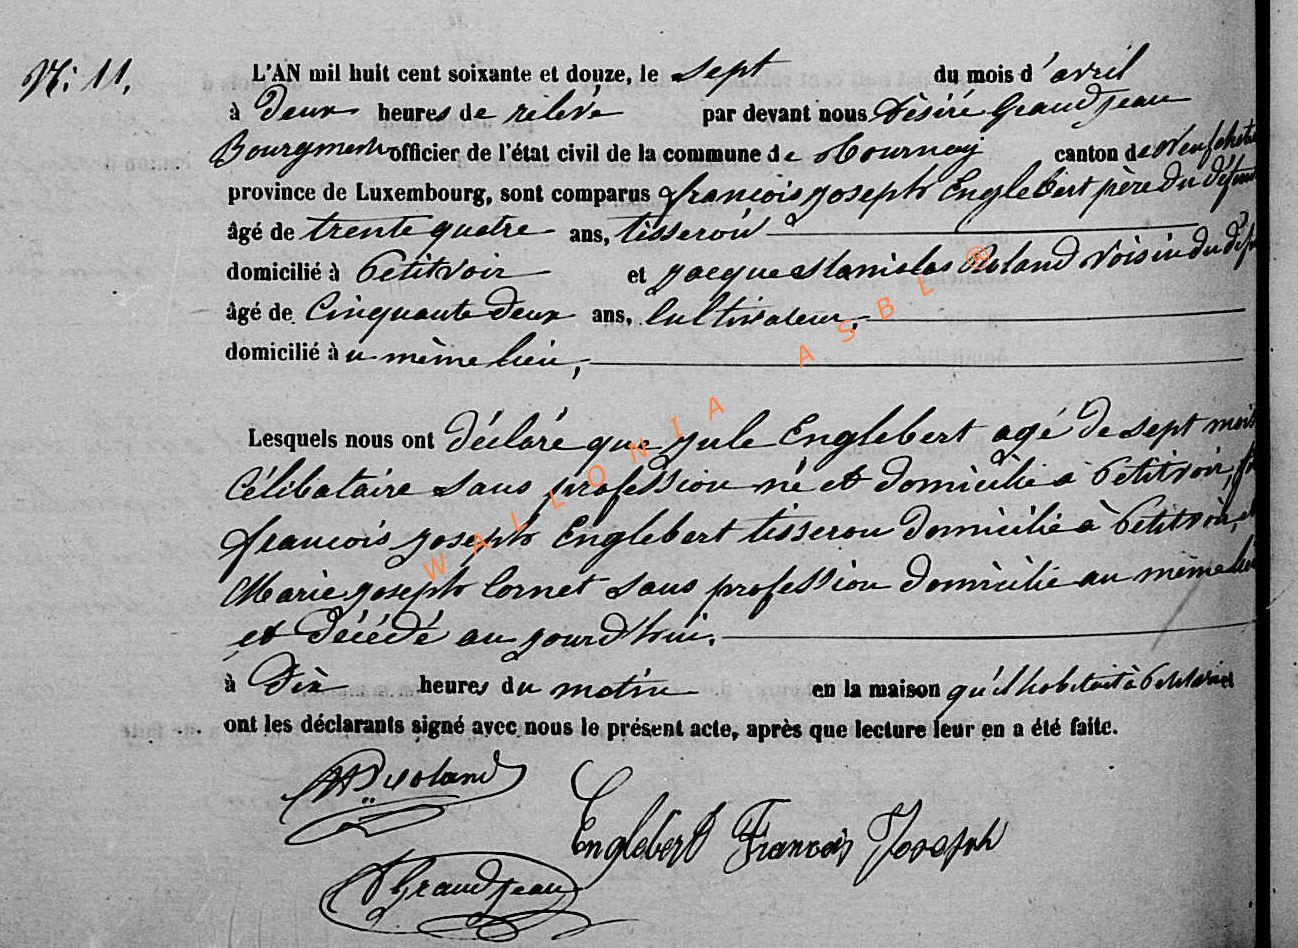 N: 11.
L'AN mil huit cent soixante et douze, le sept du mois d'avril
à Deux heures de relevé par devant nous Désiré Grandjean
Bourgmestre officier de l'état civil de la commune de Tournay canton de Neufchateau
province de Luxembourg, sont comparus françois joseph Englebert père du défunt
âgé de trente quatre ans, tisseroù
domicilié à Petitvoir et jacque Stanislas Roland voisin du
âgé de Cinquante deux ans, Cultivateur,
domicilié à u même lieu,
Lesquels nous ont déclaré que jule Englebert agé de sept mois
Célibataire sans profession né et domicilié à Petitvoir,
françois joseph Englebert tisserou domicilié à Petitvoir, et
Marie joseph Cornet sans profession domicilié au même lieu
et décédé au jourd'hui.
à Dix heures du matin en la maison qu'il habitait à Petitvoir et
ont les déclarants signé avec nous le présent acte, après que lecture leur en a été faite.
Roland
Englebert François Joseph
D Grandjean
WALLONIA ASBL ®